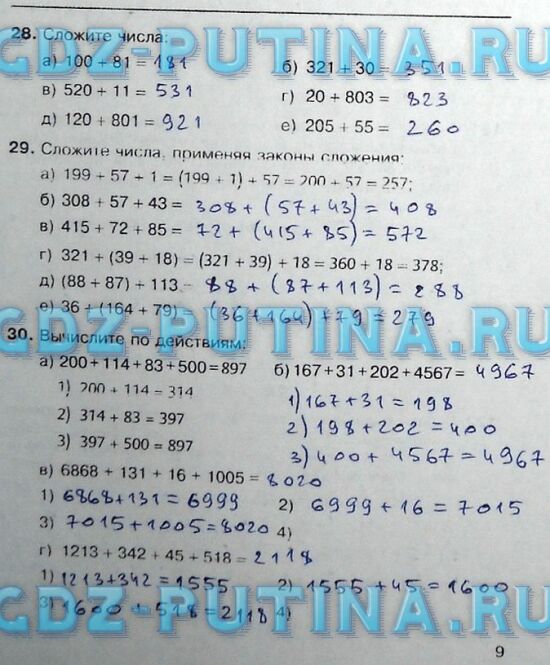 28. Сложите числа:
а) 100 + 81 = 181 б) 321 + 30 = 351
в) 520 + 11 = 531 г) 20 + 803 = 823
д) 120 + 801 = 921 е) 205 + 55 = 260
29. Сложите числа, применяя законы сложения:
а) 199 + 57 + 1 = (199 + 1) + 57 = 200 + 57 = 257;
б) 308 + 57 + 43 = 308 + (57 + 43) = 408
в) 415 + 72 + 85 = 72 + (415 + 85) = 572
г) 321 + (39 + 18) = (321 + 39) + 18 = 360 + 18 = 378;
д) (88 + 87) + 113 = 88 + (87 + 113) = 288
е) 36 + (164 + 79) = (36 + 164) + 79 = 279
30. Вычислите по действиям:
а) 200 + 114 + 83 + 500 = 897 б) 167 + 31 + 202 + 4567 = 4967
1) 200 + 114 = 314 1) 167 + 31 = 198
2) 314 + 83 = 397 2) 198 + 202 = 400
3) 397 + 500 = 897 3) 400 + 4567 = 4967
в) 6868 + 131 + 16 + 1005 = 8020
1) 6868 + 131 = 6999 2) 6999 + 16 = 7015
3) 7015 + 1005 = 8020 4)
г) 1213 + 342 + 45 + 518 = 2118
1) 1213 + 342 = 1555 2) 1555 + 45 = 1600
3) 1600 + 518 = 2118 4)
9
GDZ-PUTINA.RU
GDZ-PUTINA.RU
GDZ-PUTINA.RU